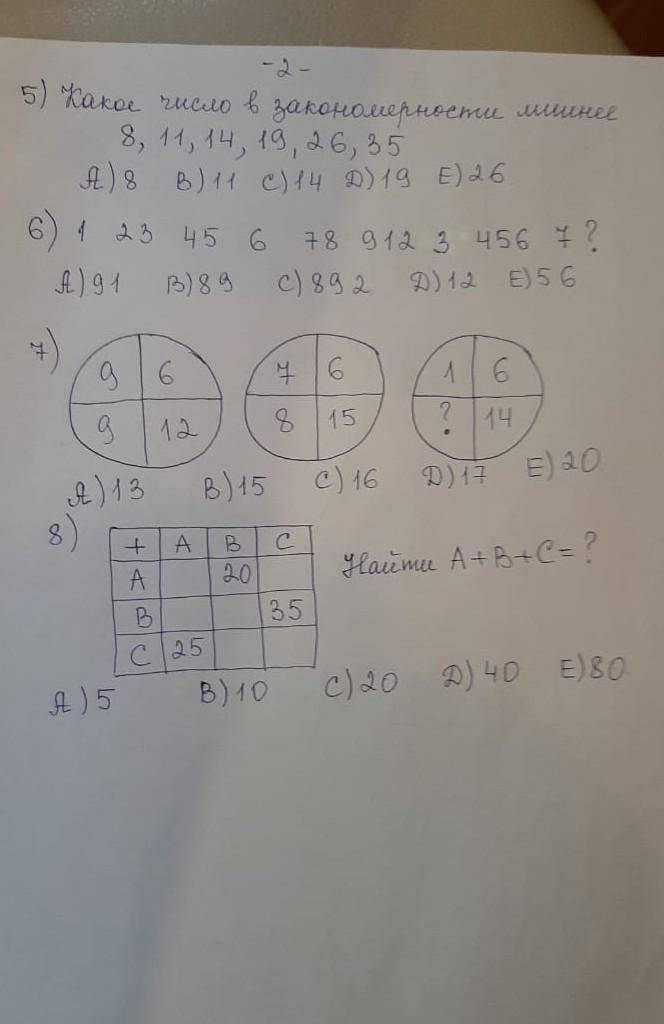 -2-
5) Какое число в закономерности лишнее
8, 11, 14, 19, 26, 35
A) 8 B) 11 C) 14 D) 19 E) 26
6) 1 23 45 6 78 912 3 456 7 ?
A) 91 B) 89 C) 892 D) 12 E) 56
7)
9 6 7 6 1 6
9 12 8 15 ? 14
A) 13 B) 15 C) 16 D) 17 E) 20
8)
+ A B C
A 20 Найти A+B+C=?
B 35
C 25
A) 5 B) 10 C) 20 D) 40 E) 80